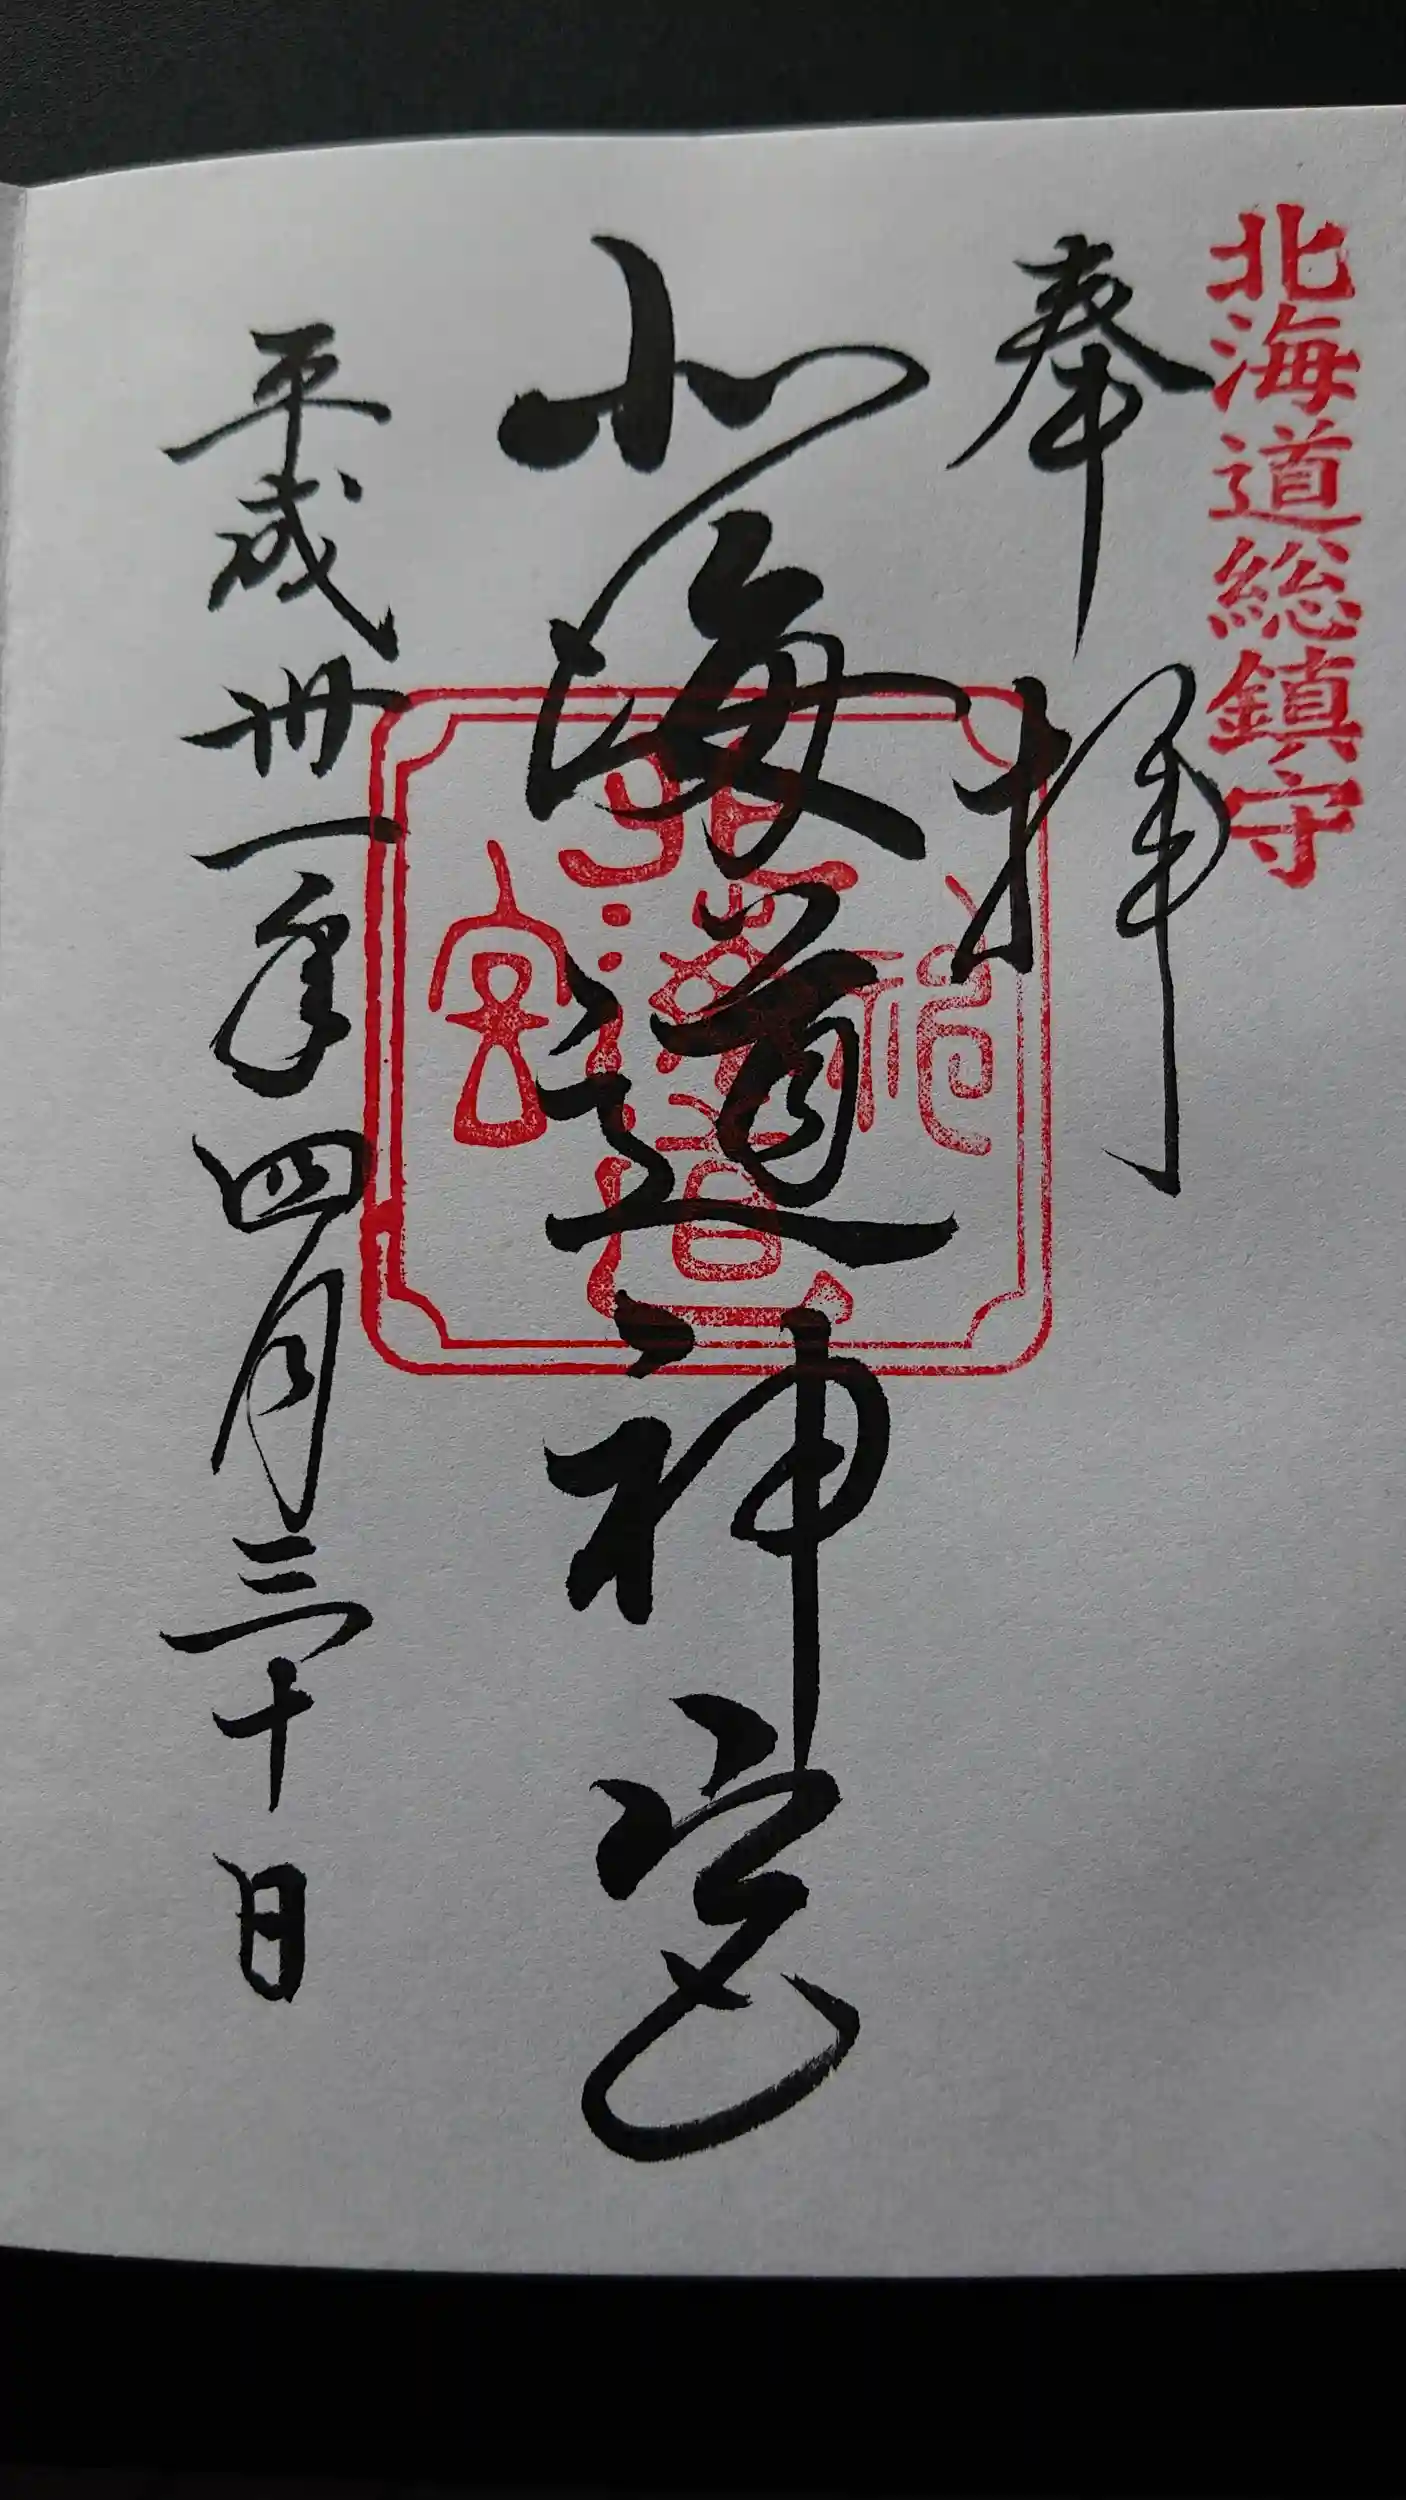 北海道総鎮守
奉拝
北海道神宮
北海道神宮
平成卅一年四月三十日